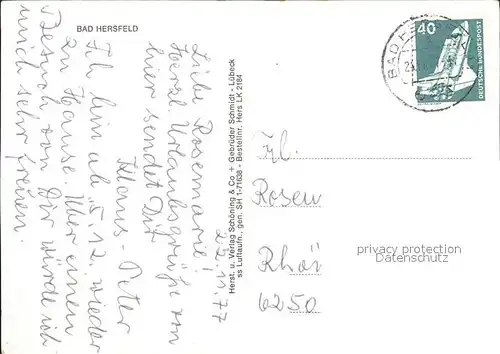 BAD HERSFELD
22.11.77
Liebe Rosemarie!
Herzl. Urlaubsgrüße von
hier sendet Dir
Klaus-Peter
Ich bin ab 5.12. wieder
zu Hause. Über einen
Besuch von Dir würde ich
mich sehr freuen.
Herst. u. Verlag Schöning & Co + Gebrüder Schmidt - Lübeck
ss Luftaufn., gen. SH 1-71638 - Bestellnr. Hers LK 2184
40
DEUTSCHE BUNDESPOST
BAD HE
Frl.
Rosem
Rhön
6250
privacy protection
Datenschutz